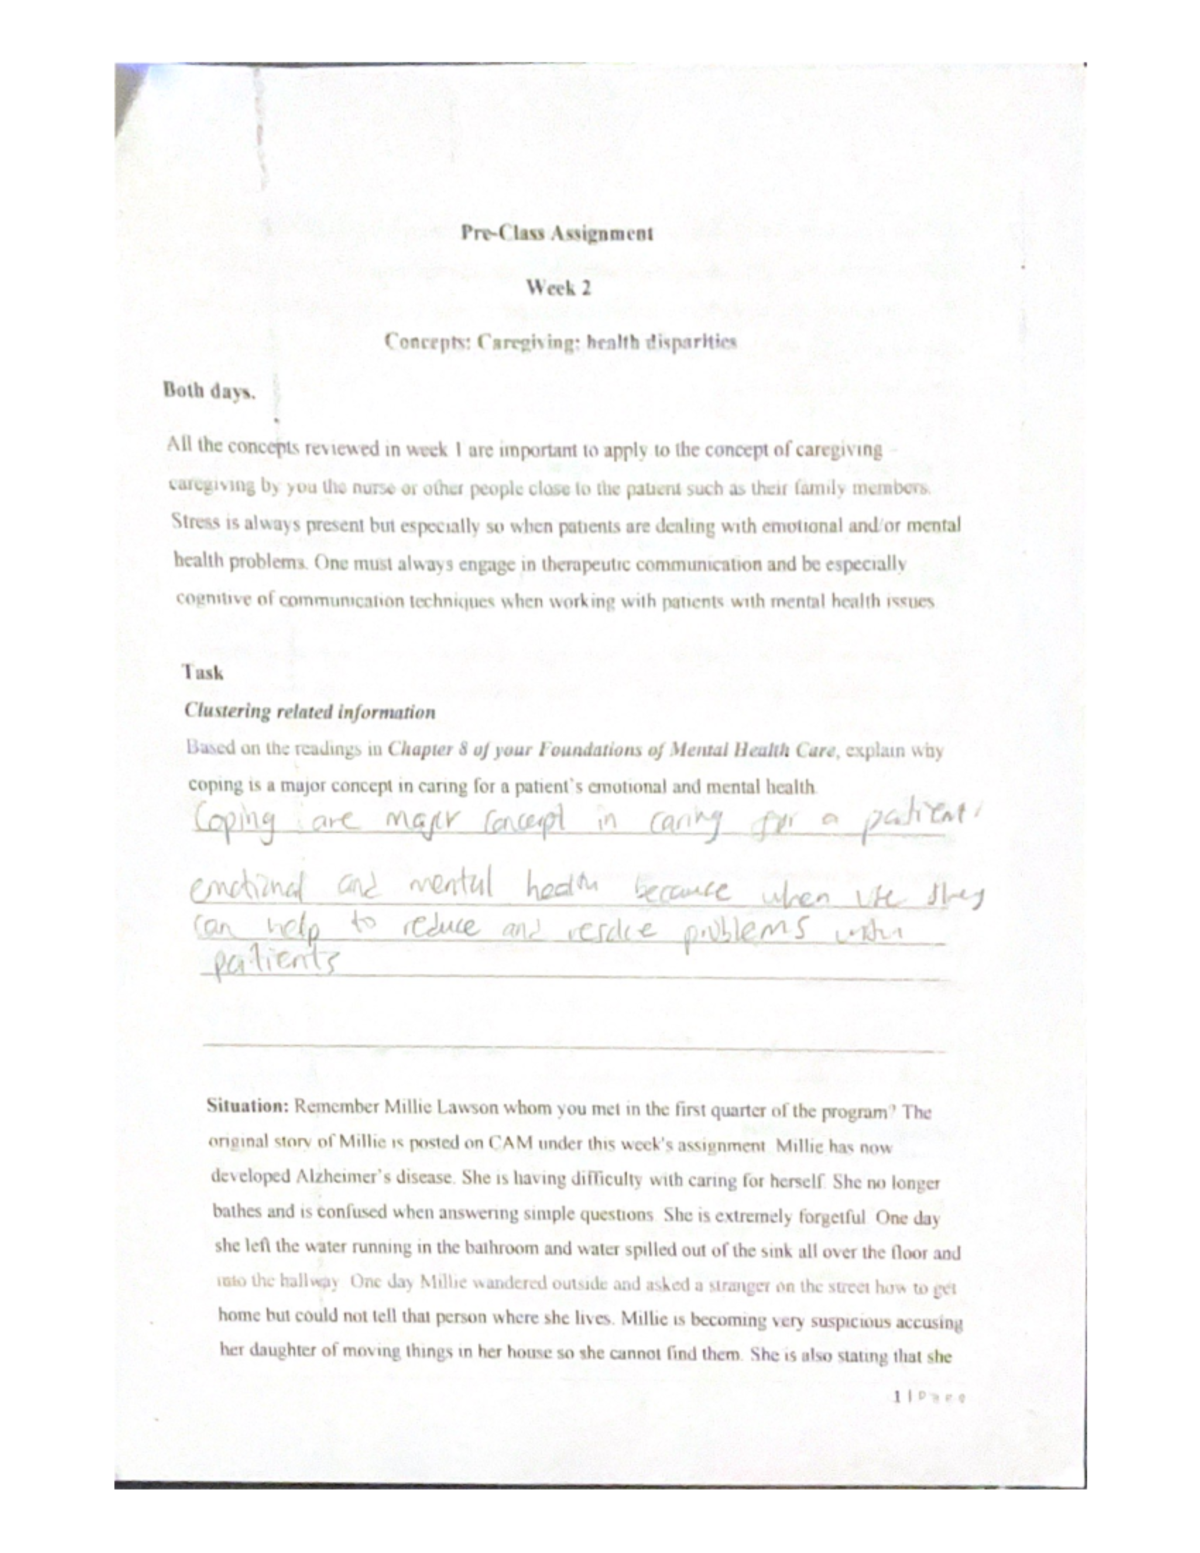 Pre-Class Assignment
Week 2
Concepts: Caregiving: health disparities
Both days.
All the concepts reviewed in week 1 are important to apply to the concept of caregiving –
caregiving by you the nurse or other people close to the patient such as their family members.
Stress is always present but especially so when patients are dealing with emotional and/or mental
health problems. One must always engage in therapeutic communication and be especially
cognitive of communication techniques when working with patients with mental health issues
Task
Clustering related information
Based on the readings in Chapter 8 of your Foundations of Mental Health Care, explain why
coping is a major concept in caring for a patient's emotional and mental health.
Coping are major concept in caring for a patient'
emotional and mental health because when use they
can help to reduce and resolve problems within
patients
Situation: Remember Millie Lawson whom you met in the first quarter of the program? The
original story of Millie is posted on CAM under this week's assignment. Millie has now
developed Alzheimer's disease. She is having difficulty with caring for herself. She no longer
bathes and is confused when answering simple questions. She is extremely forgetful. One day
she left the water running in the bathroom and water spilled out of the sink all over the floor and
into the hallway. One day Millie wandered outside and asked a stranger on the street how to get
home but could not tell that person where she lives. Millie is becoming very suspicious accusing
her daughter of moving things in her house so she cannot find them. She is also stating that she
1 | Page